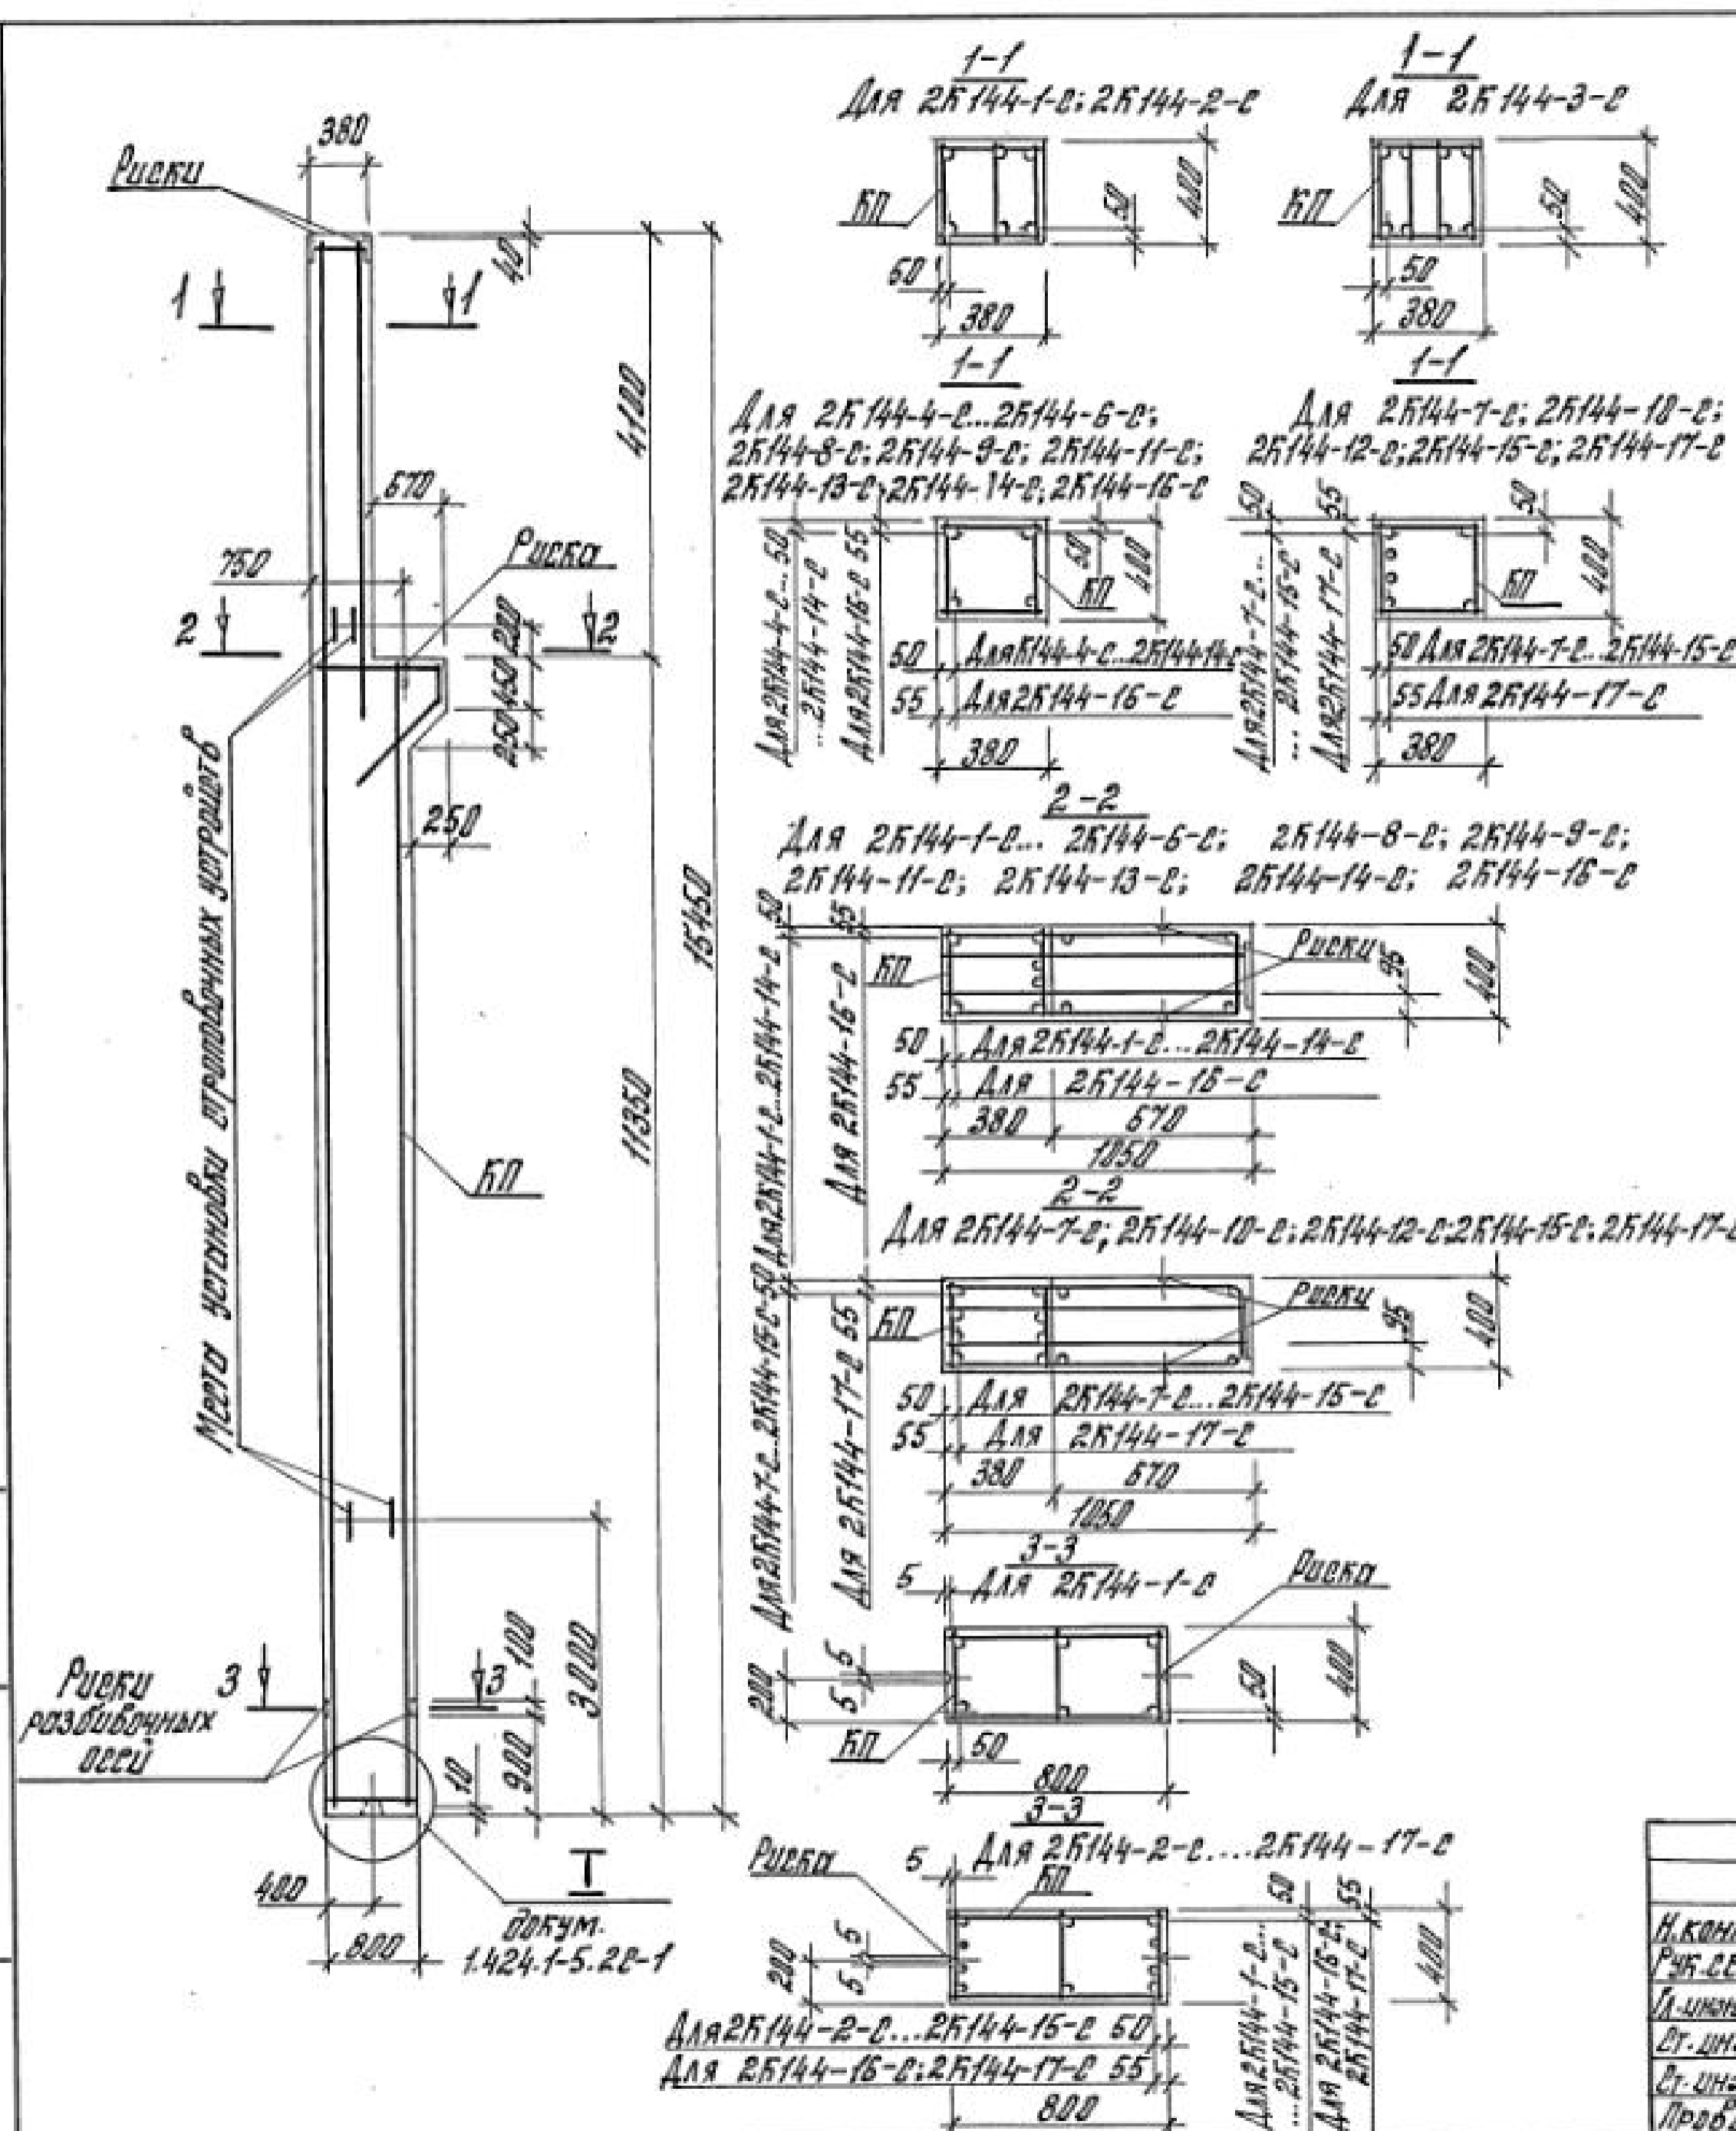 380
Риски
40
1
1
4100
670
750
Риска
2
2
200
450
250
250
Места установки строповочных устройств
15450
11350
КП
3000
100
900
10
Риски
разбивочных
осей
3
3
400
800
I
докум.
1.424.1-5.2с-1
1-1
Для 2К144-1-с; 2К144-2-с
КП
50
400
50
380
1-1
Для 2К144-3-с
КП
50
400
50
380
1-1
Для 2К144-4-с...2К144-6-с;
2К144-8-с; 2К144-9-с; 2К144-11-с;
2К144-13-с; 2К144-14-с; 2К144-16-с
Для 2К144-4-с... 50
...2К144-14-с
Для 2К144-16-с 55
50
400
КП
50 Для К144-4-с...2К144-14-с
55 Для 2К144-16-с
380
1-1
Для 2К144-7-с; 2К144-10-с;
2К144-12-с; 2К144-15-с; 2К144-17-с
Для 2К144-7-с... 50
... 2К144-15-с
Для 2К144-17-с 55
50
400
КП
50 Для 2К144-7-с...2К144-15-с
55 Для 2К144-17-с
380
2-2
Для 2К144-1-с... 2К144-6-с; 2К144-8-с; 2К144-9-с;
2К144-11-с; 2К144-13-с; 2К144-14-с; 2К144-16-с
Для 2К144-1-с...2К144-14-с 50
Для 2К144-16-с 55
КП
Риски
95
400
50 Для 2К144-1-с...2К144-14-с
55 Для 2К144-16-с
380
670
1050
2-2
Для 2К144-7-с; 2К144-10-с; 2К144-12-с; 2К144-15-с; 2К144-17-с
Для 2К144-7-с...2К144-15-с 50
Для 2К144-17-с 55
КП
Риски
95
400
50 Для 2К144-7-с...2К144-15-с
55 Для 2К144-17-с
380
670
1050
3-3
5 Для 2К144-1-с
Риска
200
5
5
КП
50
400
50
800
3-3
Для 2К144-2-с....2К144-17-с
Риска
5
КП
200
5
5
Для 2К144-1-с... 50
...2К144-15-с
Для 2К144-16-с; 55
2К144-17-с
400
Для 2К144-2-с...2К144-15-с 50
Для 2К144-16-с; 2К144-17-с 55
800
Н.кон
Рук.се
Гл.инж
Ст.инж
Ст.инж
Пров